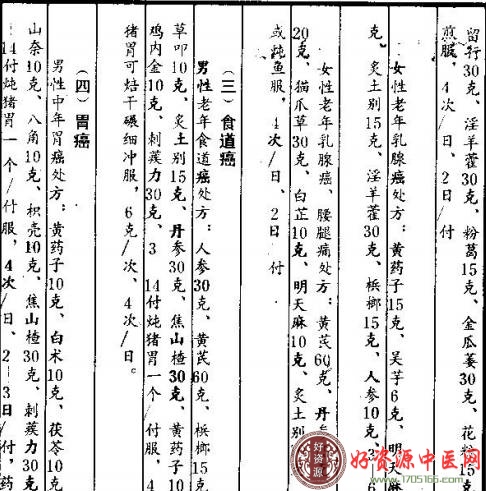 留行30克、淫羊藿30克、粉葛15克、金瓜蒌30克、花粉15克
煎服，4次/日、2日/付
女性老年乳腺癌处方：黄药子15克、吴芋6克、明天麻
克、炙土别15克、淫羊藿30克、槟榔15克、人参10克、3
女性老年乳腺癌、腰腿痛处方：黄芪60克、丹
20克、猫爪草30克、白芷10克、明天麻10克、炙土别
或炖鱼服，4次/日、2日/付
（三）食道癌
男性老年食道癌处方：人参30克、黄芪60克、槟榔15克
草叩10克、炙土别15克、丹参30克、焦山楂30克、黄药子10
鸡内金10克、刺蒺力30克、3 14付炖猪胃一个/付服，4
猪胃可焙干碾细冲服，6克/次、4次/日。
（四）胃癌
男性中年胃癌处方：黄药子10克、白术10克、茯苓10克
山奈10克、八角10克、枳壳10克、焦山楂30克、刺蒺力30克
14付炖猪胃一个/付服，4次/日、2—3日/付，药
好资源
好资源中医网
www.1705166.com